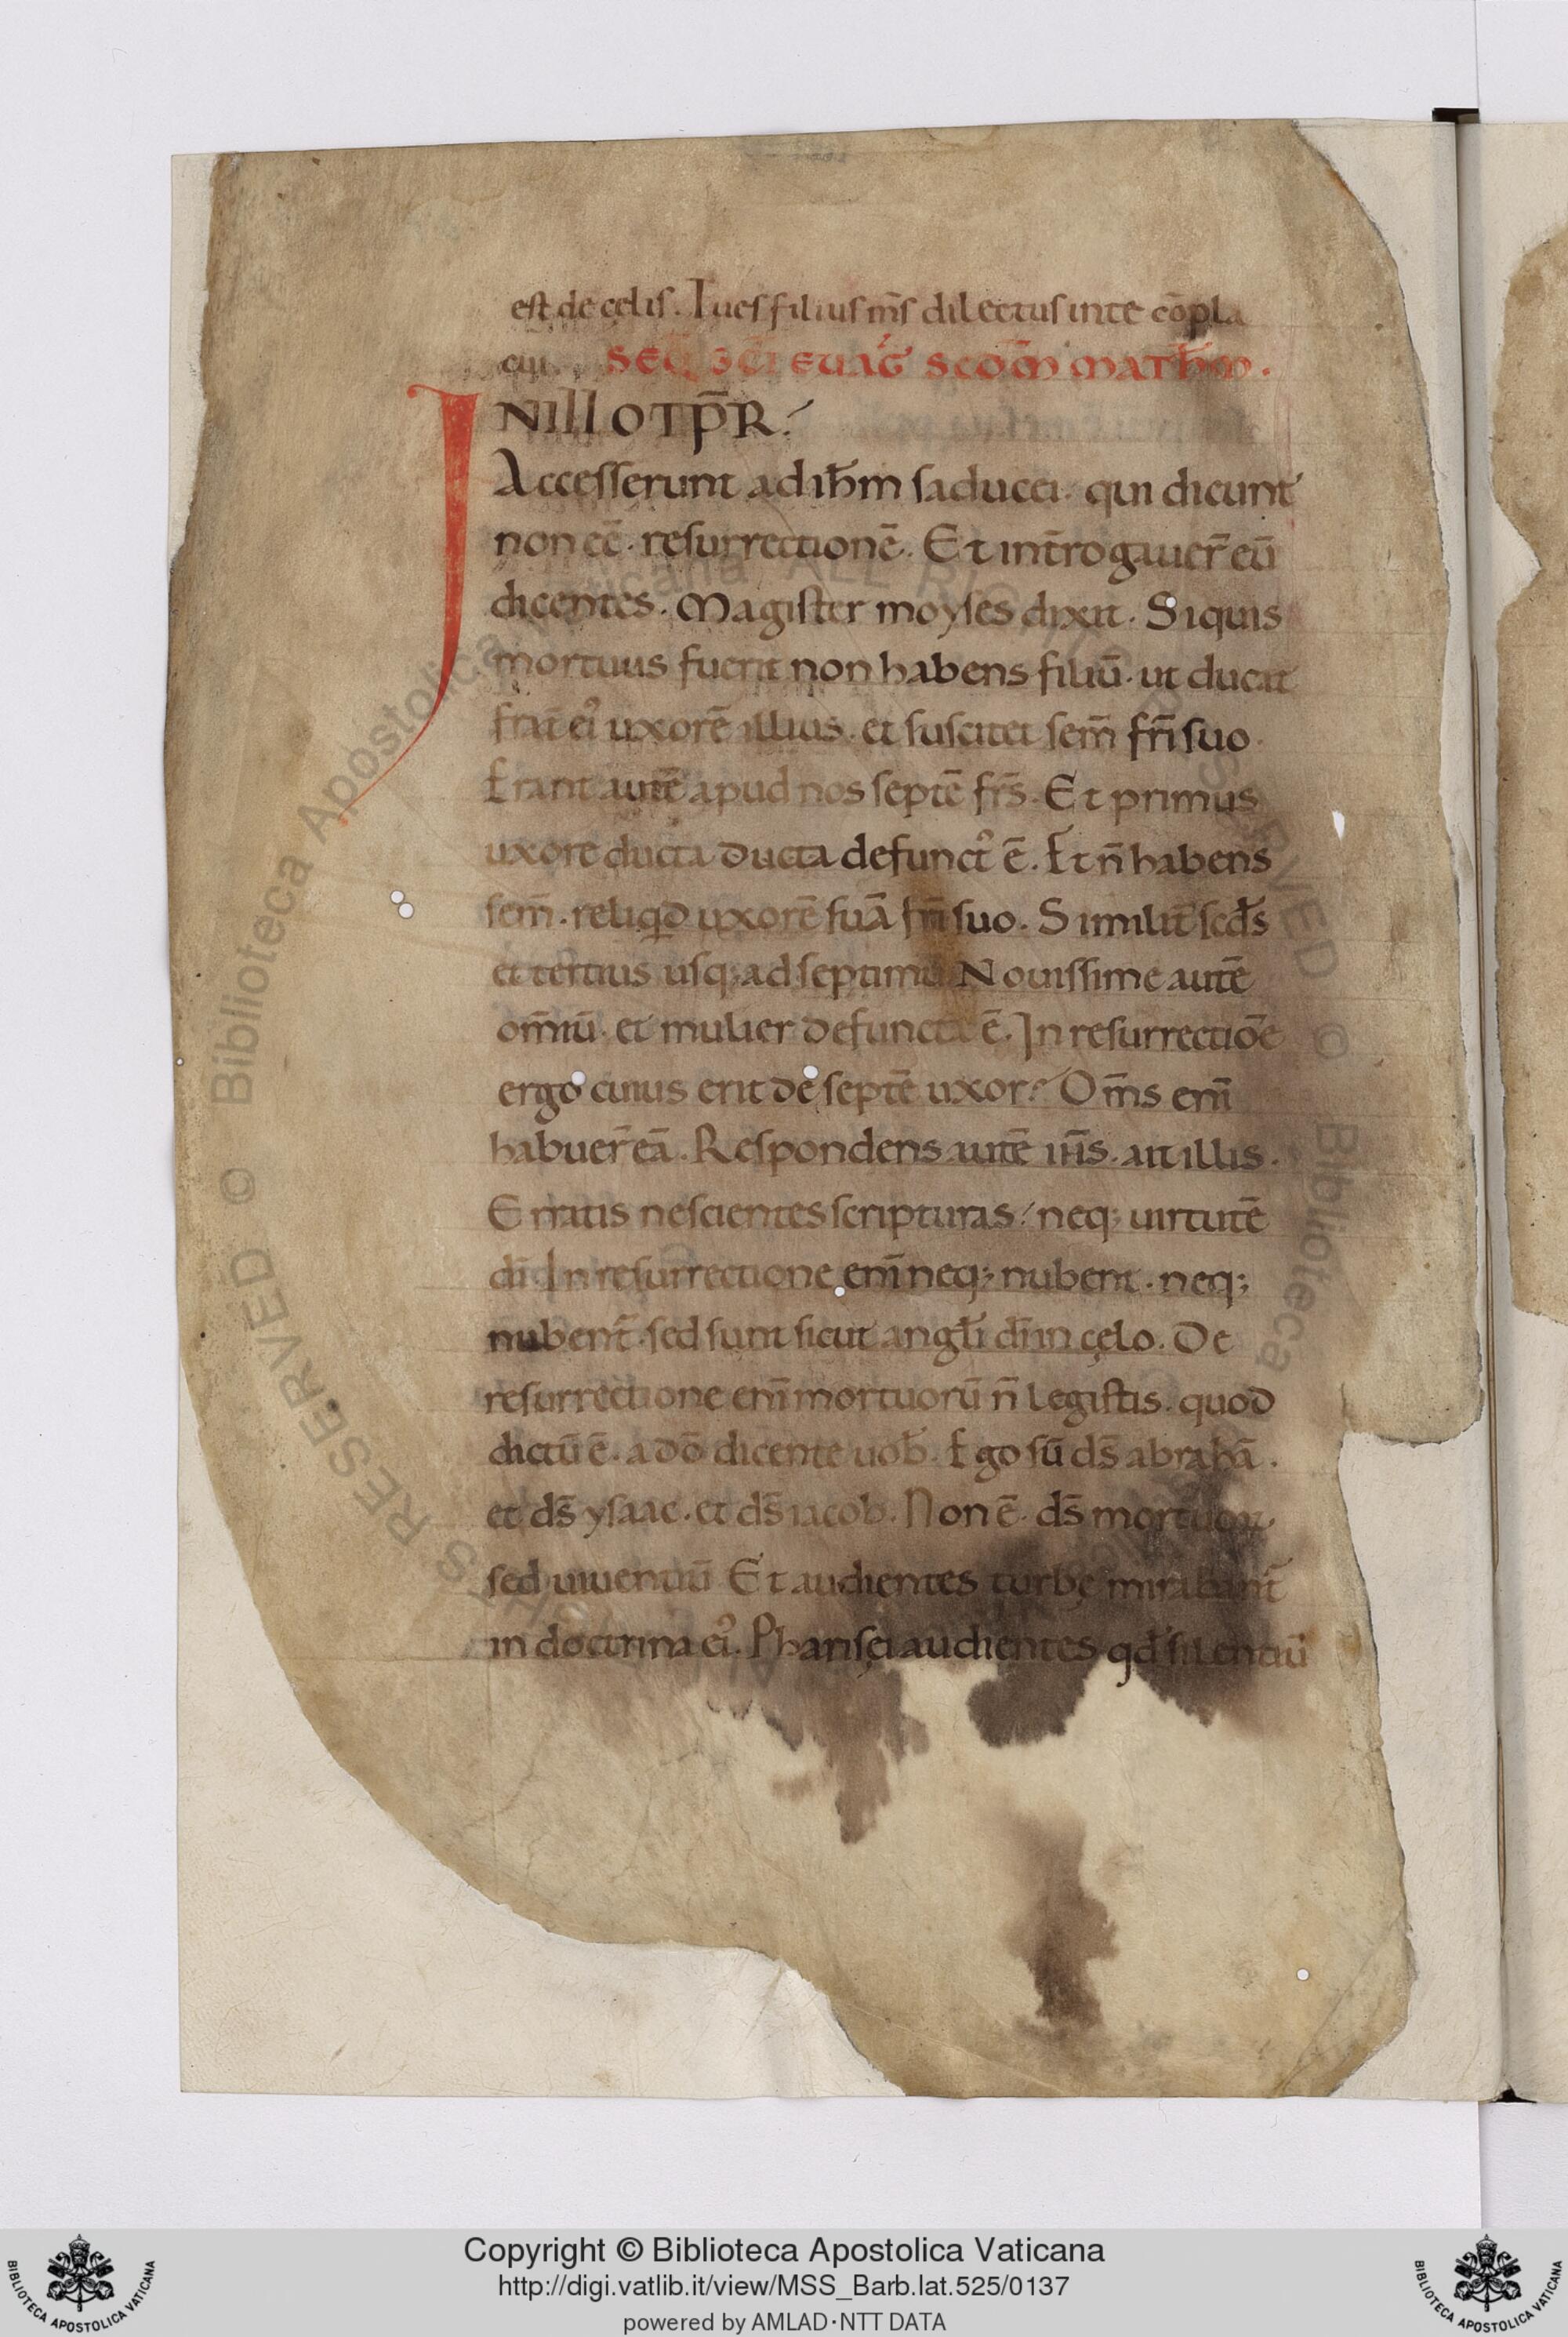 est de cęlis. Tu es filius m̄s dilectus in te cōpla
cui. SEQ̄ S̄CI EUAG̅ SCD̄M MATH̄M.
IN ILLO TP̄R.
Accesserunt ad ih̄m saducei. qui dicunt
non eē. resurrectionē. Et int̄rogauer̄ eū
dicentes. Magister moyses dixit. Si quis
mortuus fuerit non habens filiū. ut ducat
frat̄ ei᾽ uxorē illius. et suscitet sem̄ fr̄i suo.
Erant autē apud nos septē fr̄s. Et primus
uxore ducta ducta defunct᾽ ē. Et n̄ habens
sem̄. reliq̇d uxorē suā fr̄i suo. Similit̄ scd̄s
et tertius usq; ad septimū Nouissime autē
om̄iū. et mulier defuncta ē. In resurrectiōe
ergo cuius erit de septē uxor? Om̄s eni̅
habuer̄ eā. Respondens autē ih̄s. ait illis.
Erratis nescientes scripturas. neq; uirtutē
di̅ In resurrectione eni̅ neq; nubent. neq;
nubent̄. sed sunt sicut angl̄i di̅ in cęlo. De
resurrectione eni̅ mortuorū n̄ legistis. quod
dictū ē. a dō dicente uob̄. Ego sū ds̄ abrahā.
et ds̄ ysaac. et ds̄ iacob. Non ē. ds̄ mortuoꝝ.
sed uiuentiū Et audientes turbę mirabant̄
in doctrina ei᾽. Pharisęi audientes qd̄ silentiū
Copyright © Biblioteca Apostolica Vaticana
http://digi.vatlib.it/view/MSS_Barb.lat.525/0137
powered by AMLAD·NTT DATA
BIBLIOTECA APOSTOLICA VATICANA
BIBLIOTECA APOSTOLICA VATICANA